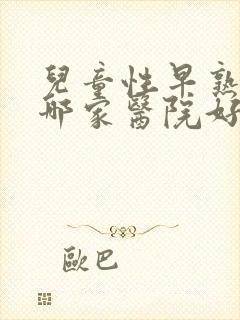 兒童性早熟
哪家醫院好
歐巴